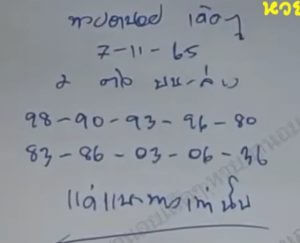 หวย
หวยฮานอย เฉพาะ
7-11-65
2 ตัว บน-ล่าง
98-90-93-96-80
83-86-03-06-36
แค่แนะทางเท่านั้น